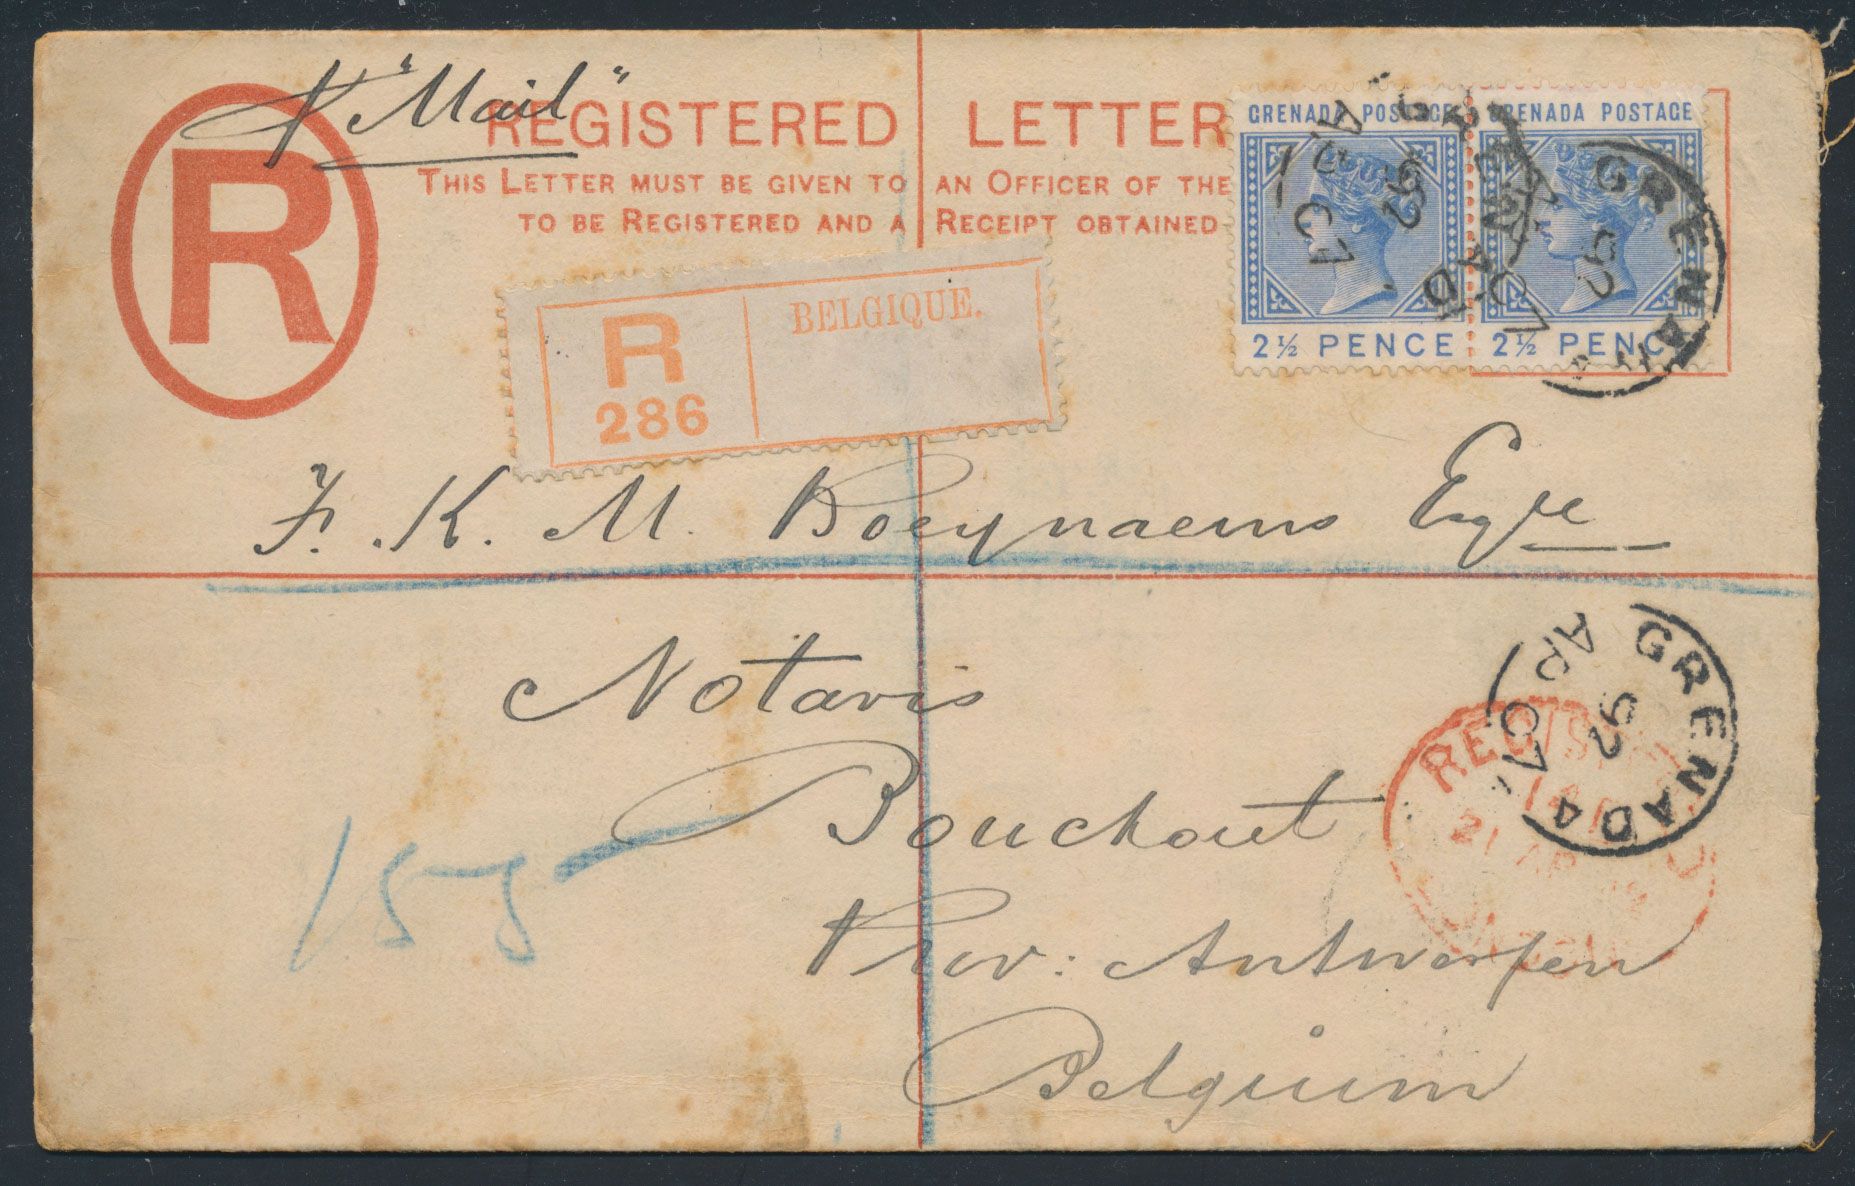 p "Mail"
R
REGISTERED LETTER
THIS LETTER MUST BE GIVEN TO AN OFFICER OF THE
TO BE REGISTERED AND A RECEIPT OBTAINED
GRENADA POSTAGE
2½ PENCE
GRENADA POSTAGE
2½ PENC
GRENADA
92
GRENADA
AP
92
R
286
BELGIQUE.
F. K. M. Boeynaems Esqre
Notaris
Bouchout
Prov: Antwerpen
Belgium
155
GRENADA
AP
92
REGIS
21 AP